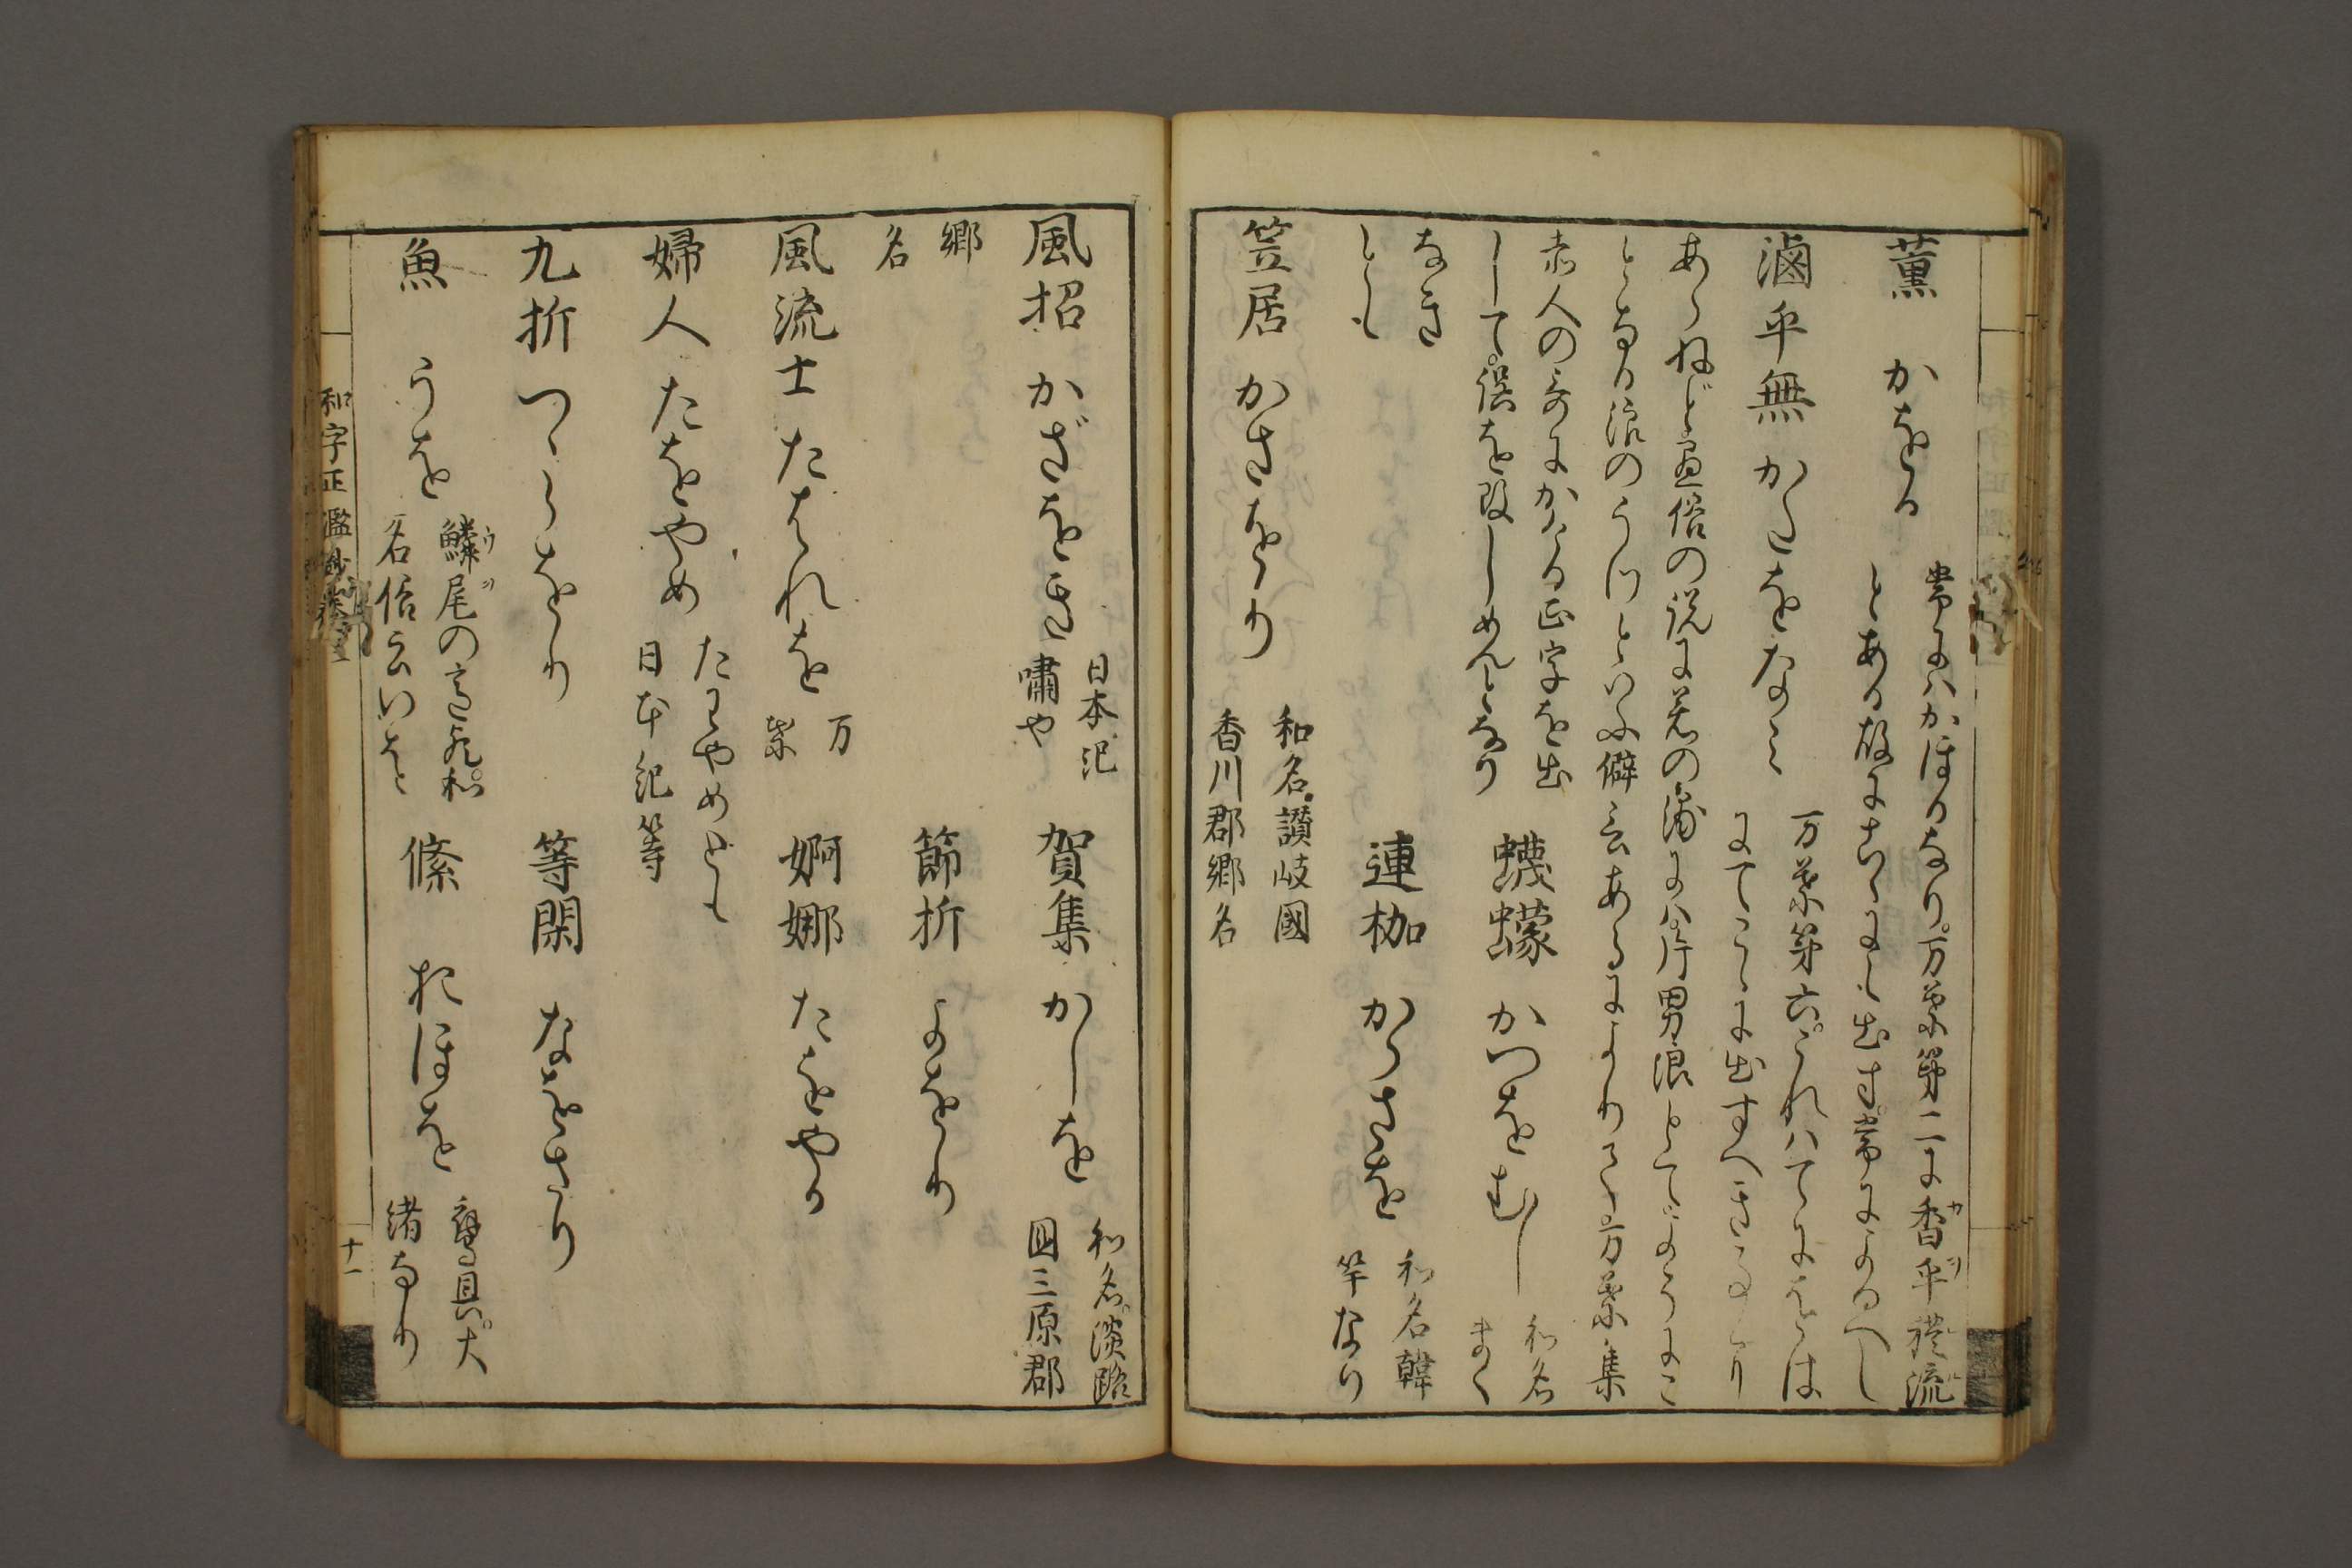 薫 かをる
常にハかほるなり。万葉第二に香乎礼流
とある故にこゝにも出す。常によるへし
滷乎無 かたをなみ
万葉第六。これハてにをは
にてこゝに出すへきにあら
あらねど昼俗の説に若の浦にハ片男浪とてよるうに
とある浪のうつといふ僻言あるによりて万葉集
赤人の哥にかける正字を出
して。誤を改しめんとなり
蠛蠓 かつをむし
和名
まく
なき
とも
連枷 からさを
和名韓
竿なり
笠居 かさをり
和名讃岐國
香川郡郷名
風招 かざをき
日本紀
嘯や
賀集 かしを
和名淡路
国三原郡
郷
名
節折 よをり
風流士 たはれを
万
葉
婀娜 たをやか
婦人 たをやめ
たわやめとも
日本紀等
九折 つゝらをり
等閑 なをさり
魚 うを
鱗尾の
名俗云いを
絛 おほを
鷹具。大
緒なり
和字正濫鈔
十一